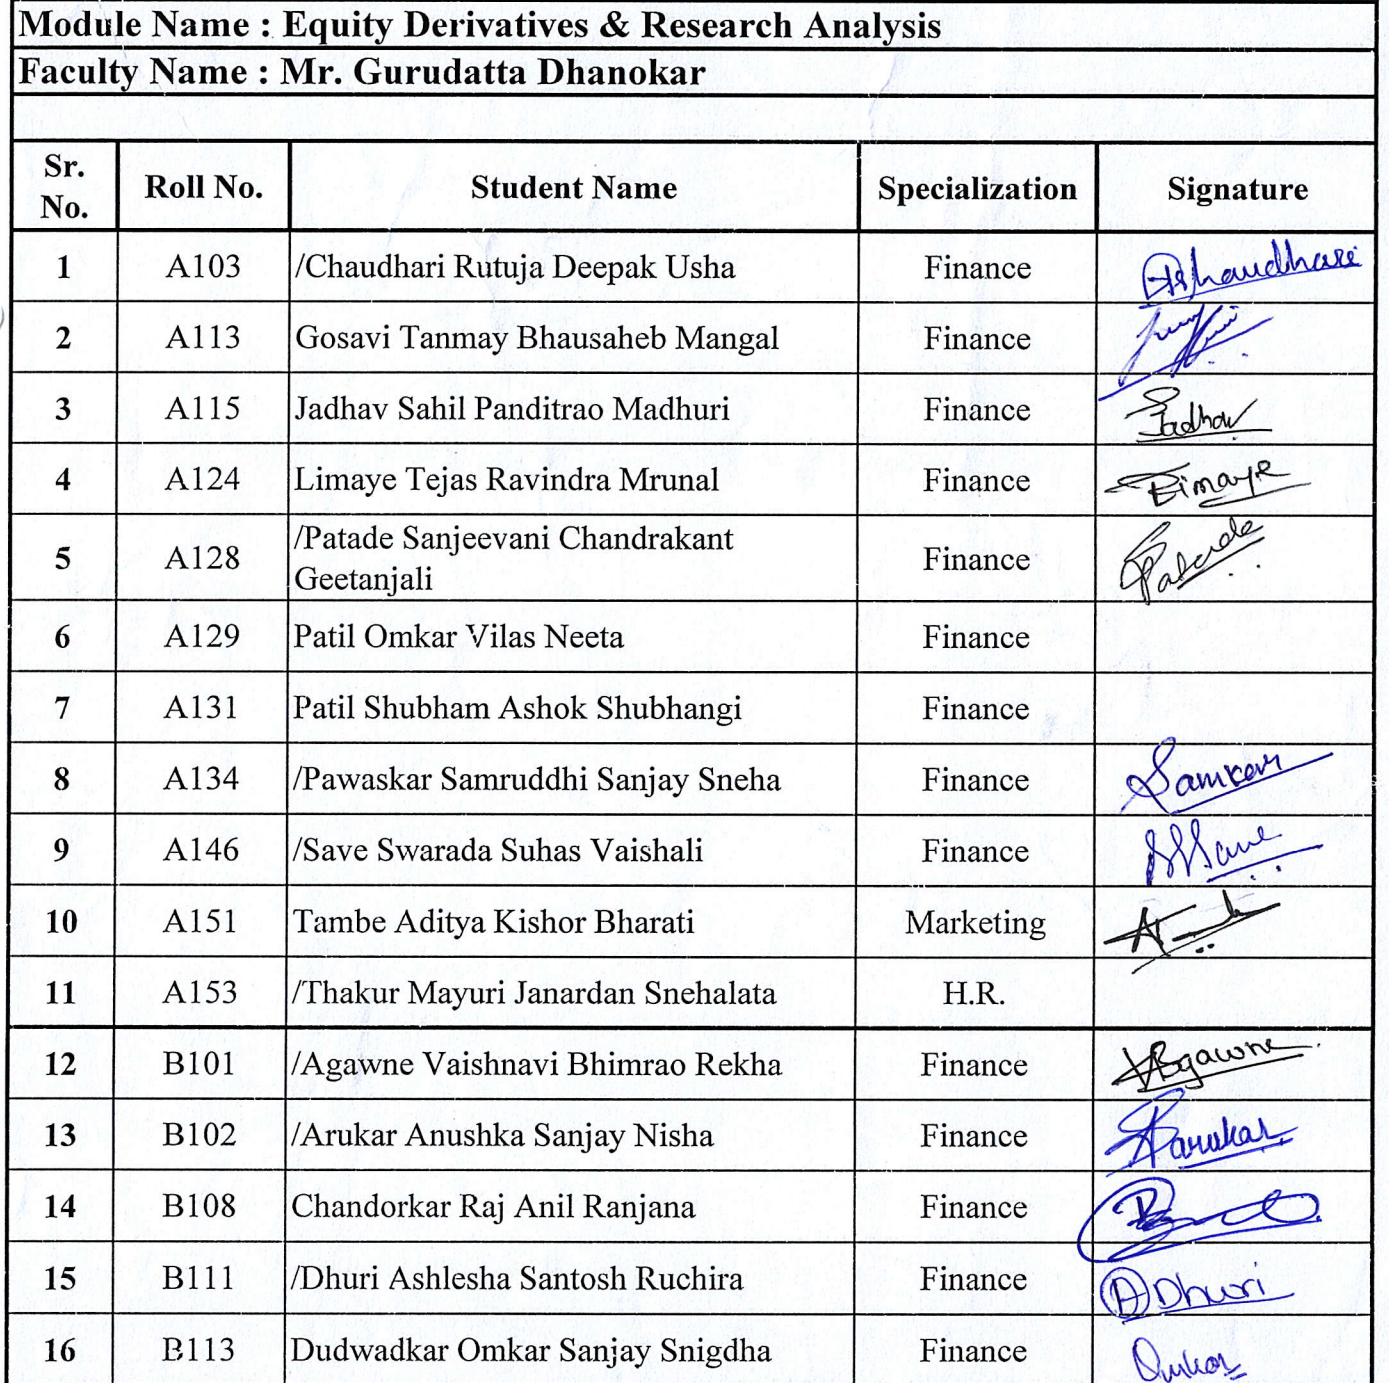 Module Name : Equity Derivatives & Research Analysis
Faculty Name : Mr. Gurudatta Dhanokar
Sr. No. Roll No. Student Name Specialization Signature
1 A103 /Chaudhari Rutuja Deepak Usha Finance
2 A113 Gosavi Tanmay Bhausaheb Mangal Finance
3 A115 Jadhav Sahil Panditrao Madhuri Finance Jadhav
4 A124 Limaye Tejas Ravindra Mrunal Finance Limaye
5 A128 /Patade Sanjeevani Chandrakant Geetanjali Finance Patade
6 A129 Patil Omkar Vilas Neeta Finance
7 A131 Patil Shubham Ashok Shubhangi Finance
8 A134 /Pawaskar Samruddhi Sanjay Sneha Finance
9 A146 /Save Swarada Suhas Vaishali Finance
10 A151 Tambe Aditya Kishor Bharati Marketing
11 A153 /Thakur Mayuri Janardan Snehalata H.R.
12 B101 /Agawne Vaishnavi Bhimrao Rekha Finance
13 B102 /Arukar Anushka Sanjay Nisha Finance
14 B108 Chandorkar Raj Anil Ranjana Finance
15 B111 /Dhuri Ashlesha Santosh Ruchira Finance A Dhuri
16 B113 Dudwadkar Omkar Sanjay Snigdha Finance Omkar